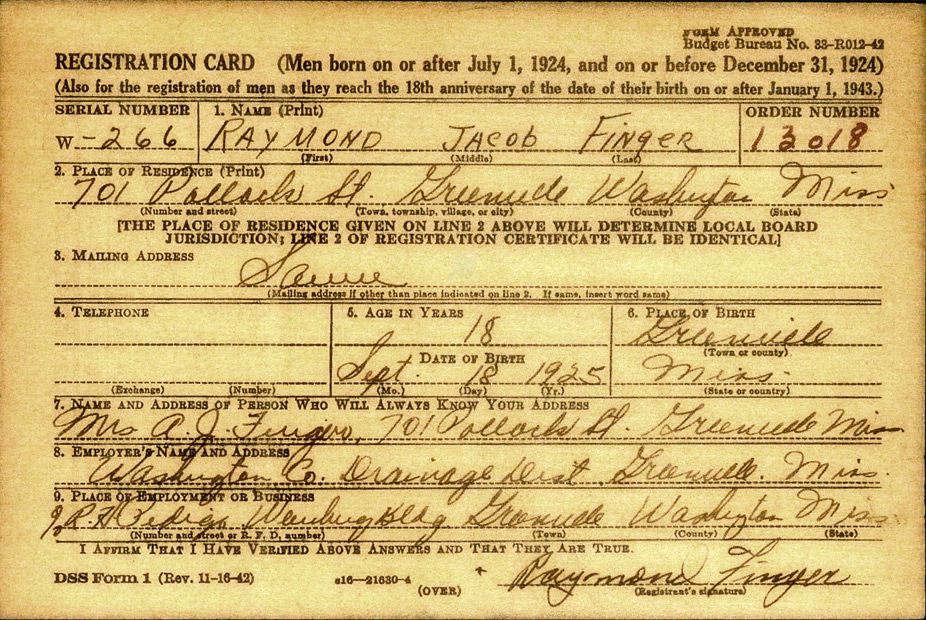 FORM APPROVED
Budget Bureau No. 33-R012-42
REGISTRATION CARD (Men born on or after July 1, 1924, and on or before December 31, 1924)
(Also for the registration of men as they reach the 18th anniversary of the date of their birth on or after January 1, 1943.)
SERIAL NUMBER 1. NAME (Print) ORDER NUMBER
W-266 RAYMOND JACOB FINGER 13018
(First) (Middle) (Last)
2. PLACE OF RESIDENCE (Print)
701 Pollock St. Greenville Washington Miss
(Number and street) (Town, township, village, or city) (County) (State)
[THE PLACE OF RESIDENCE GIVEN ON LINE 2 ABOVE WILL DETERMINE LOCAL BOARD
JURISDICTION; LINE 2 OF REGISTRATION CERTIFICATE WILL BE IDENTICAL]
3. MAILING ADDRESS
Same
(Mailing address if other than place indicated on line 2. If same, insert word same)
4. TELEPHONE 5. AGE IN YEARS 6. PLACE OF BIRTH
18 Greenville
DATE OF BIRTH (Town or county)
Sept. 18 1925 Miss.
(Exchange) (Number) (Mo.) (Day) (Yr.) (State or country)
7. NAME AND ADDRESS OF PERSON WHO WILL ALWAYS KNOW YOUR ADDRESS
Mrs A. J. Finger, 701 Pollock St. Greenville Miss
8. EMPLOYER'S NAME AND ADDRESS
Washington Co. Drainage Dist Greenville. Miss.
9. PLACE OF EMPLOYMENT OR BUSINESS
Weinberg Bldg Greenville Washington Miss
(Number and street or R. F. D. number) (Town) (County) (State)
I AFFIRM THAT I HAVE VERIFIED ABOVE ANSWERS AND THAT THEY ARE TRUE.
DSS Form 1 (Rev. 11-16-42) 16—21630-4 Raymond Finger
(OVER) (Registrant's signature)